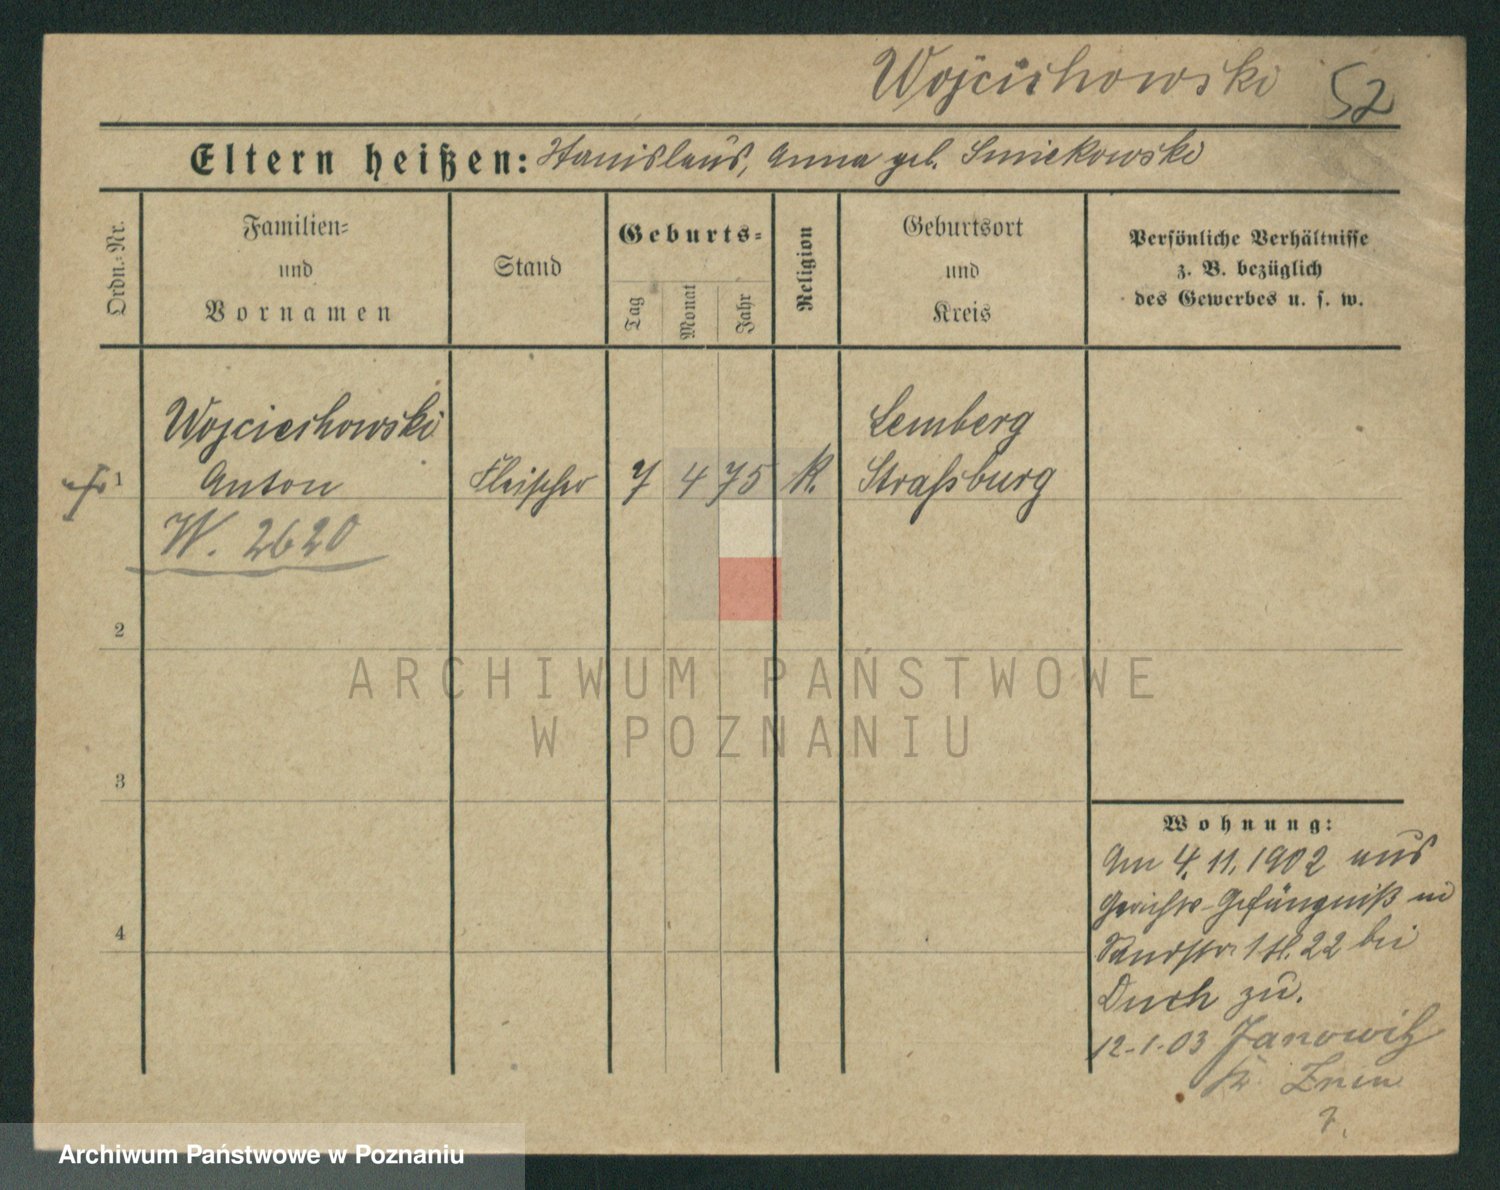 Wojciechowski 52
Eltern heißen: Stanislaus, Anna geb. Smiekowski
Ordn.=Nr.
Familien=
und
Vornamen
Stand
Geburts=
Tag
Monat
Jahr
Religion
Geburtsort
und
Kreis
Persönliche Verhältnisse
z. B. bezüglich
des Gewerbes u. s. w.
Wojciechowski
Anton
1
Fleischer
7 4 75
K.
Lemberg
Straßburg
W. 2620
2
ARCHIWUM PAŃSTWOWE
W POZNANIU
3
4
Wohnung:
Am 4.11.1902 aus
Gerichts-Gefängniß in
22 bei
Duch zu.
12-1-03 Janowitz
Kr. Znin
7.
Archiwum Państwowe w Poznaniu